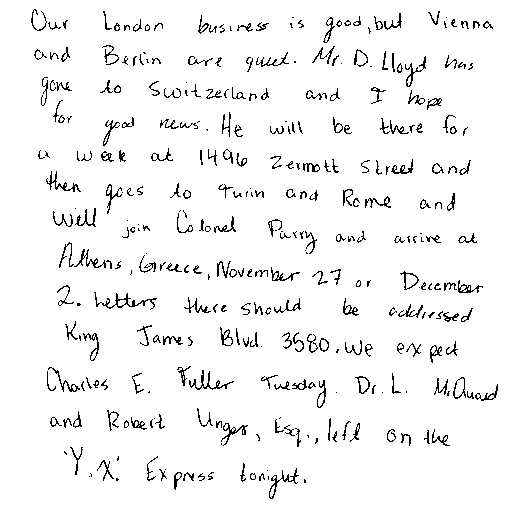 Our London business is good, but Vienna
and Berlin are quiet. Mr. D. Lloyd has
gone to Switzerland and I hope
for good news. He will be there for
a week at 1496 Zermott Street and
then goes to Turin and Rome and
will join Colonel Parry and arrive at
Athens, Greece, November 27 or December
2. Letters there should be addressed
King James Blvd. 3580. We expect
Charles E. Fuller Tuesday. Dr. L. McQuaid
and Robert Unger, Esq., left on the
'Y.X.' Express tonight.